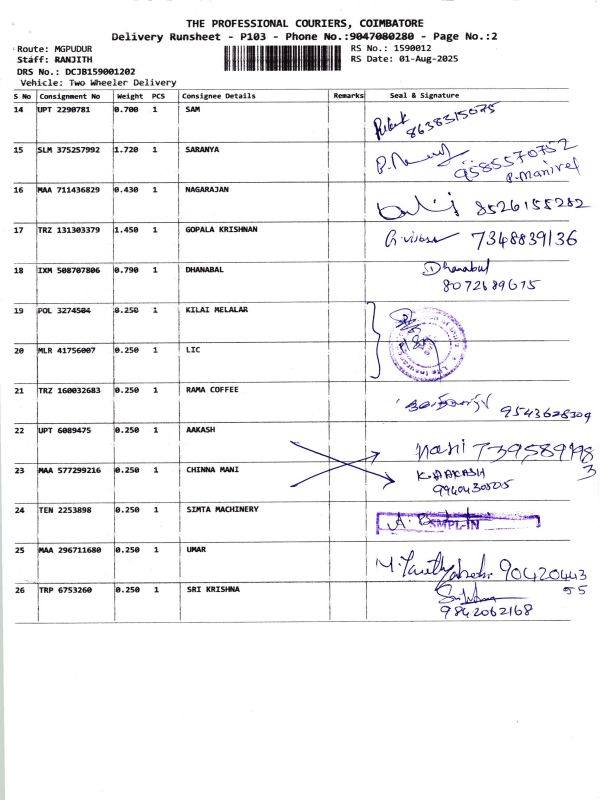 THE PROFESSIONAL COURIERS, COIMBATORE
Delivery Runsheet - P103 - Phone No.:9047080280 - Page No.:2
Route: MGPUDUR RS No.: 1590012
Staff: RANJITH RS Date: 01-Aug-2025
DRS No.: DCJB159001202
Vehicle: Two Wheeler Delivery
S No Consignment No Weight PCS Consignee Details Remarks Seal & Signature
14 UPT 2290781 0.700 1 SAM
8638315075
15 SLM 375257992 1.720 1 SARANYA
9585570752
P.Manivel
16 MAA 711436829 0.430 1 NAGARAJAN
8526155282
17 TRZ 131303379 1.450 1 GOPALA KRISHNAN
7348839136
18 IXM 508707806 0.790 1 DHANABAL Dhanabal
8072689615
19 POL 3274504 0.250 1 KILAI MELALAR
20 MLR 41756007 0.250 1 LIC
21 TRZ 160032683 0.250 1 RAMA COFFEE
9543628309
22 UPT 6089475 0.250 1 AAKASH
Mani 7395891983
23 MAA 577299216 0.250 1 CHINNA MANI K.AAKASH
9960430505
24 TEN 2253898 0.250 1 SIMTA MACHINERY
SMPL-IN
25 MAA 296711680 0.250 1 UMAR
9042044355
26 TRP 6753260 0.250 1 SRI KRISHNA
9842062168